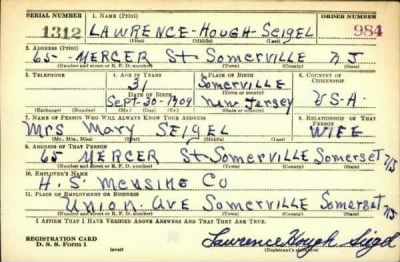 SERIAL NUMBER 1. NAME (Print) ORDER NUMBER
1312 LAWRENCE - HOUGH - SEIGEL 984
(First) (Middle) (Last)
2. ADDRESS (Print)
65 - MERCER St - SOMERVILLE NJ
(Number and street or R. F. D. number) (Town) (County) (State)
3. TELEPHONE 4. AGE IN YEARS 5. PLACE OF BIRTH 6. COUNTRY OF CITIZENSHIP
31 Somerville
DATE OF BIRTH (Town or county)
Sept-30-1909 New Jersey U-S-A.
(Exchange) (Number) (Mo.) (Day) (Yr.) (State or country)
7. NAME OF PERSON WHO WILL ALWAYS KNOW YOUR ADDRESS 8. RELATIONSHIP OF THAT PERSON
Mrs Mary SEIGEL WIFE
(Mr., Mrs., Miss) (First) (Middle) (Last)
9. ADDRESS OF THAT PERSON
65 MERCER St Somerville Somerset NJ
(Number and street or R. F. D. number) (Town) (County) (State)
10. EMPLOYER'S NAME
H. S. Co
11. PLACE OF EMPLOYMENT OR BUSINESS
Union Ave Somerville Somerset NJ
(Number and street or R. F. D. number) (Town) (County) (State)
I AFFIRM THAT I HAVE VERIFIED ABOVE ANSWERS AND THAT THEY ARE TRUE.
REGISTRATION CARD
D. S. S. Form 1 (over) Lawrence Hough Seigel
(Registrant's signature)